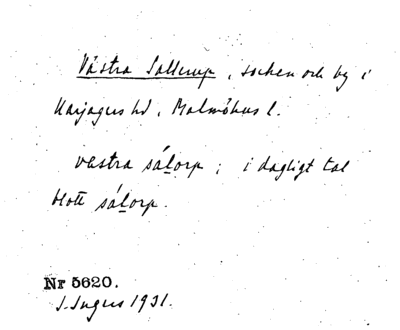 Västra Sallerup, socken och by i
Harjagers hd, Malmöhus l.
västra sálorp; i dagligt tal
blott sálorp.
Nr 5620.
J. Ingers 1931.